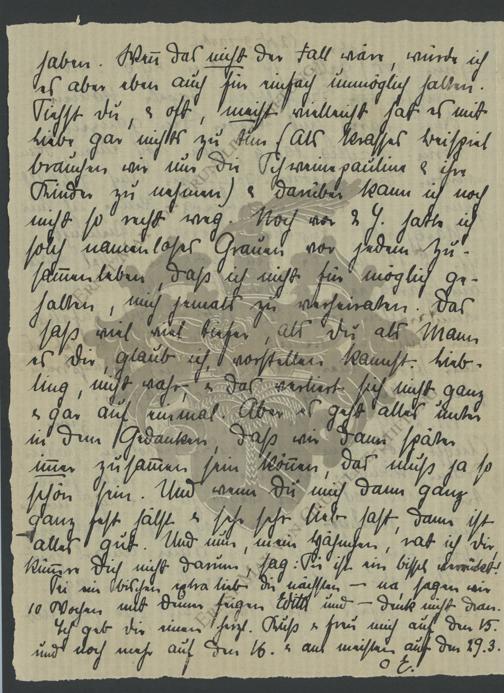 haben. Wenn das nicht der Fall wäre, würde ich
es aber eben auch für einfach unmöglich halten.
Siehst du, & oft, meist vielleicht hat es mit
Liebe gar nichts zu tun (als krasses Beispiel
brauchen wir nur die Schweinepauline & ihre
Kinder zu nehmen) & darüber kann ich noch
nicht so recht weg. Noch vor 2 J. hatte ich
solch namenloses Grauen vor jedem Zu-
sammenleben, daß ich nicht für möglich ge-
halten, mich jemals zu verheiraten. Das
saß viel viel tiefer, als du als Mann
es dir, glaub ich, vorstellen kannst. Lieb-
ling, nicht wahr, & das verliert sich nicht ganz
& gar auf einmal. Aber es geht alles unter
in dem Gedanken, daß wir dann später
immer zusammen sein können, das muß ja so
schön sein. Und wenn du mich dann ganz
ganz fest hältst & sehr sehr lieb hast, dann ist
alles gut. Und nun, mein, rat ich dir,
kümmre dich nicht darum, sag: Sie ist ein bissel verrückt!
Sei ein bischen extra lieb die nächsten — na sagen wir
10 Wochen mit deiner und — denk nicht dran.
Ich geb dir einen herzl. Kuß & freu mich auf den 15.
und noch mehr auf den 16. & am meisten auf den 29.3.